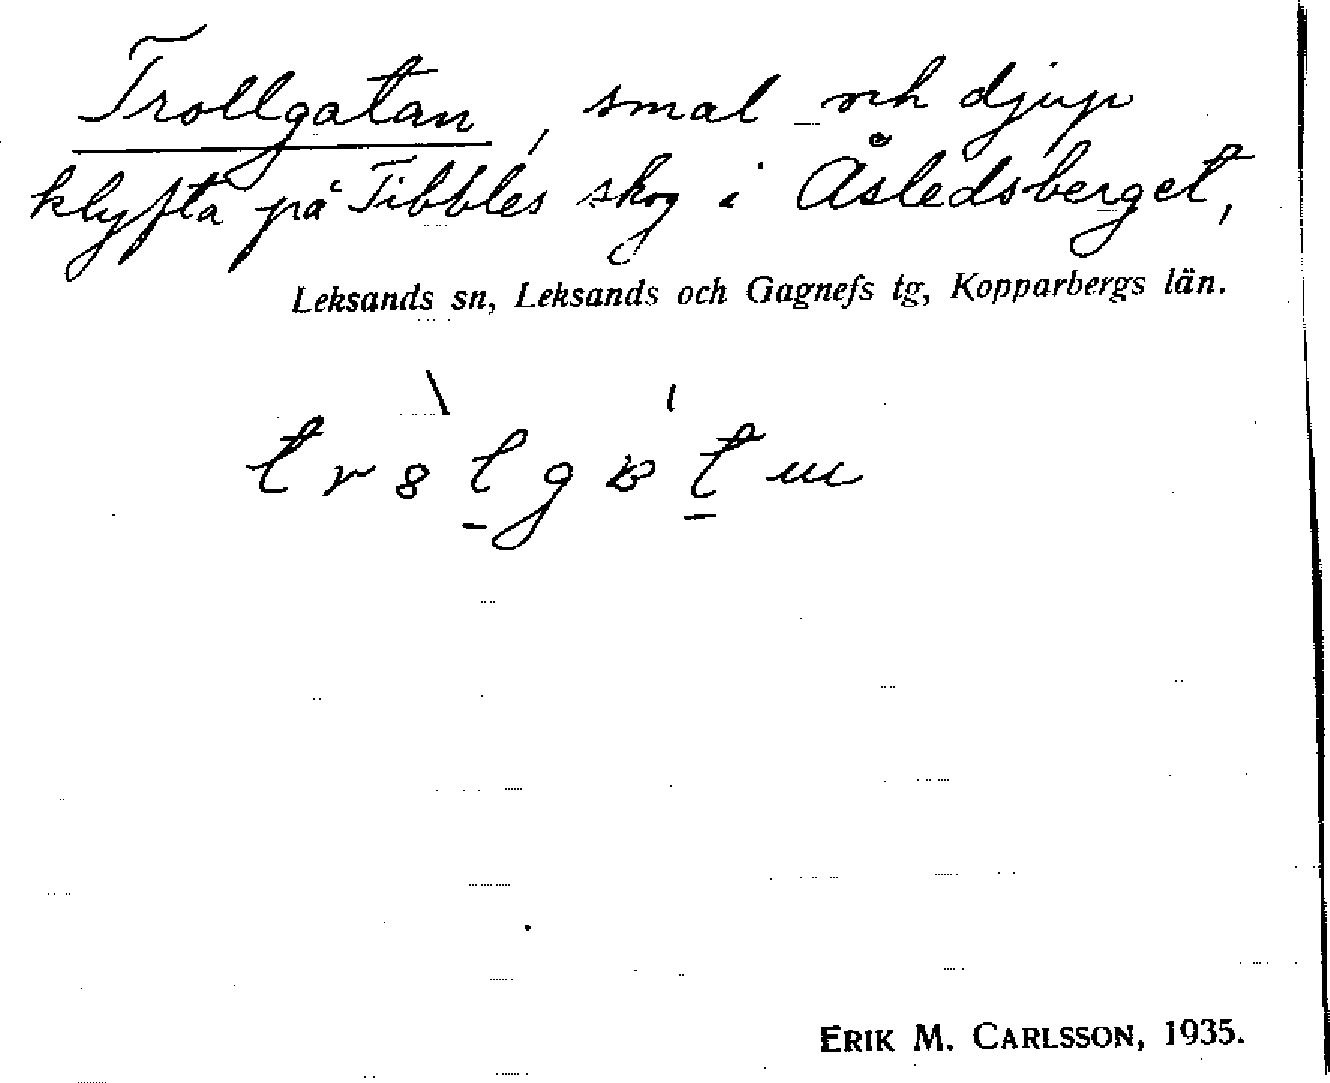 Trollgatan, smal och djup
klyfta på Tibbles skog i Åsledsberget,
Leksands sn, Leksands och Gagnefs tg, Kopparbergs län.
ERIK M. CARLSSON, 1935.